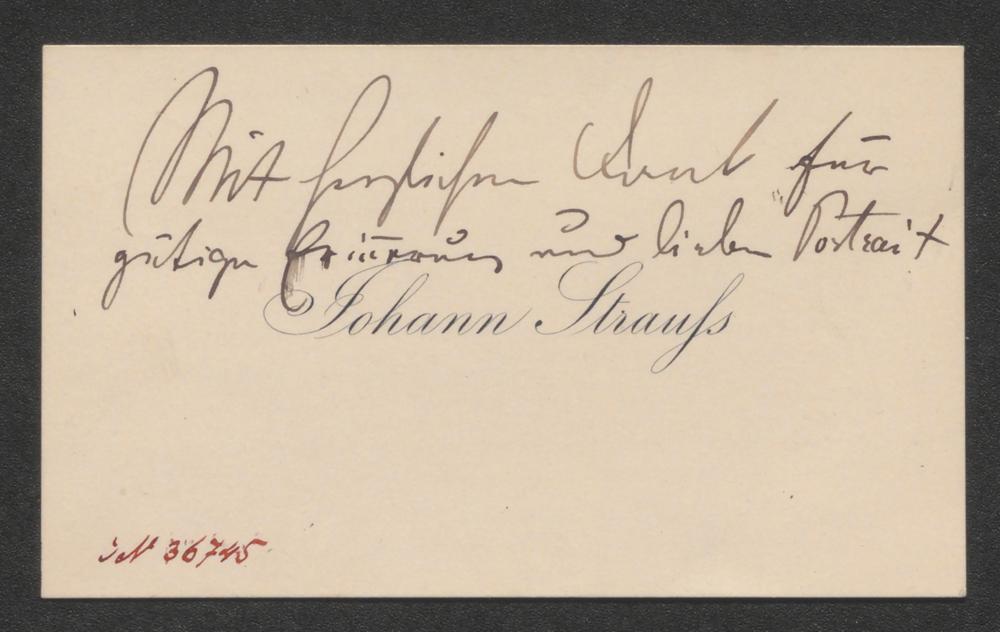 Mit herzlichem Dank für
gütige Erinnerung und liebes Portrait
Johann Strauß
IN 36745